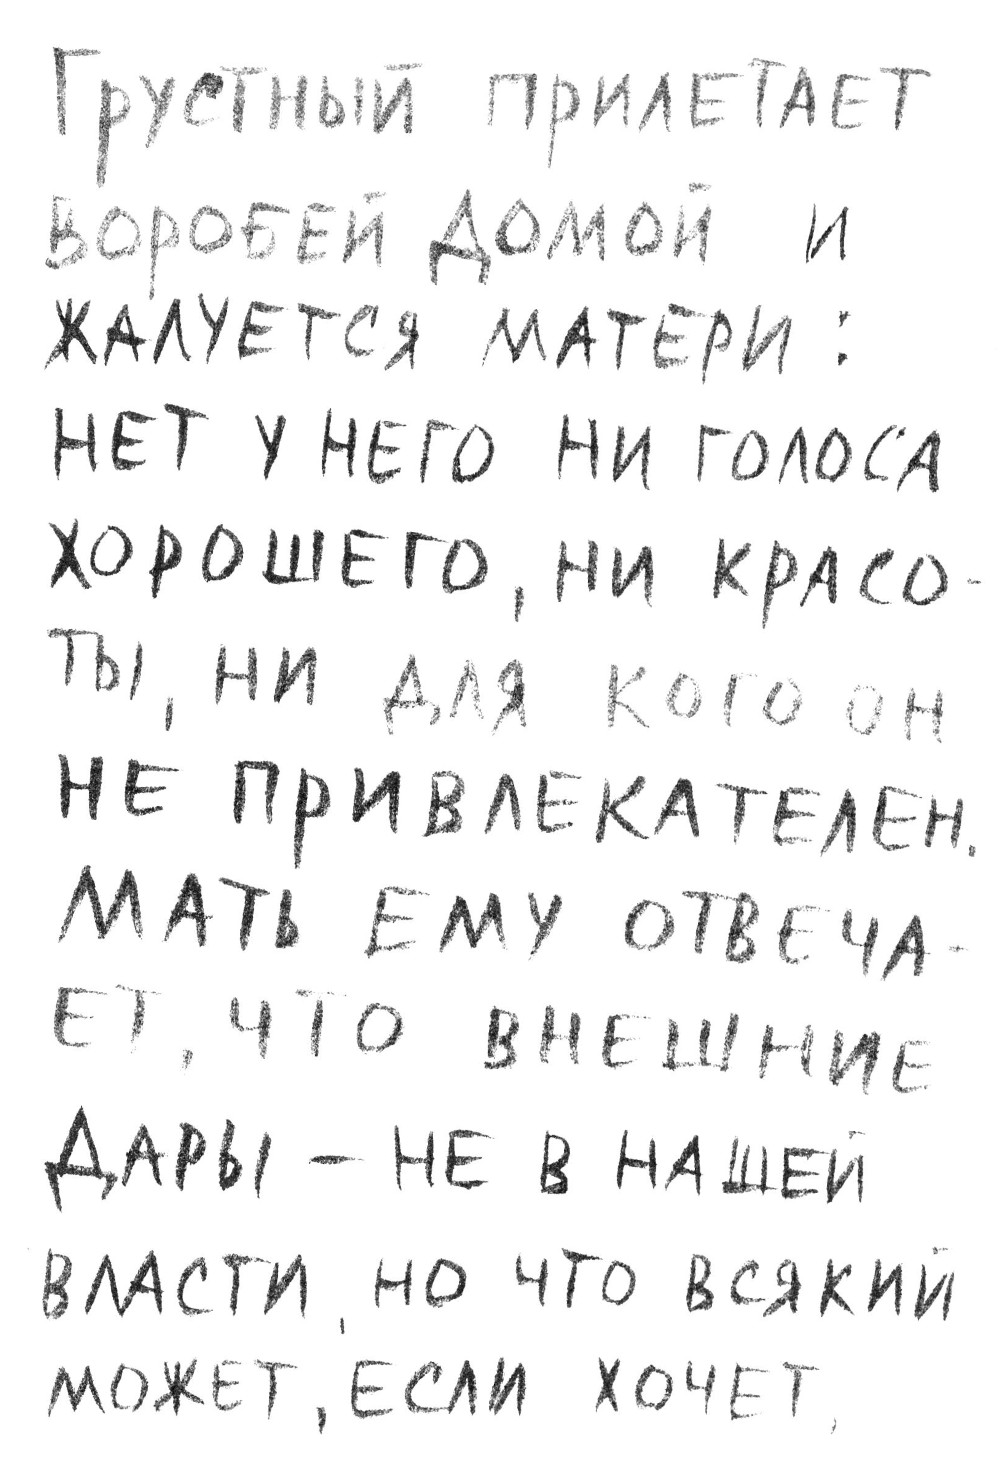 Грустный прилетает
воробей домой и
жалуется матери:
нет у него ни голоса
хорошего, ни красо-
ты, ни для кого он
не привлекателен.
Мать ему отвеча-
ет, что внешние
дары – не в нашей
власти, но что всякий
может, если хочет,